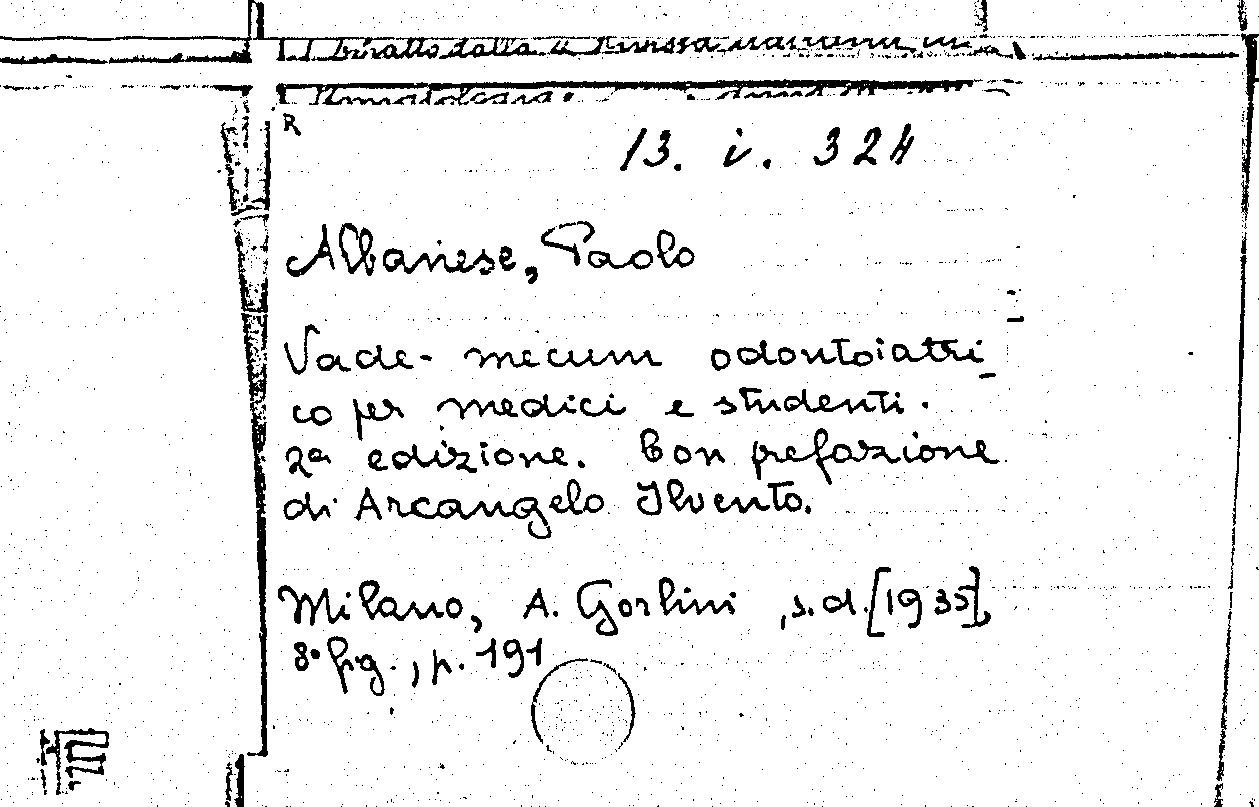 R
13. i. 324
Albanese, Paolo
Vade-mecum odontoiatri_
co per medici e studenti.
2a edizione. Con prefazione
di Arcangelo Ilvento.
Milano, A. Gorlini, s.d. [1935],
8° fig., p. 191